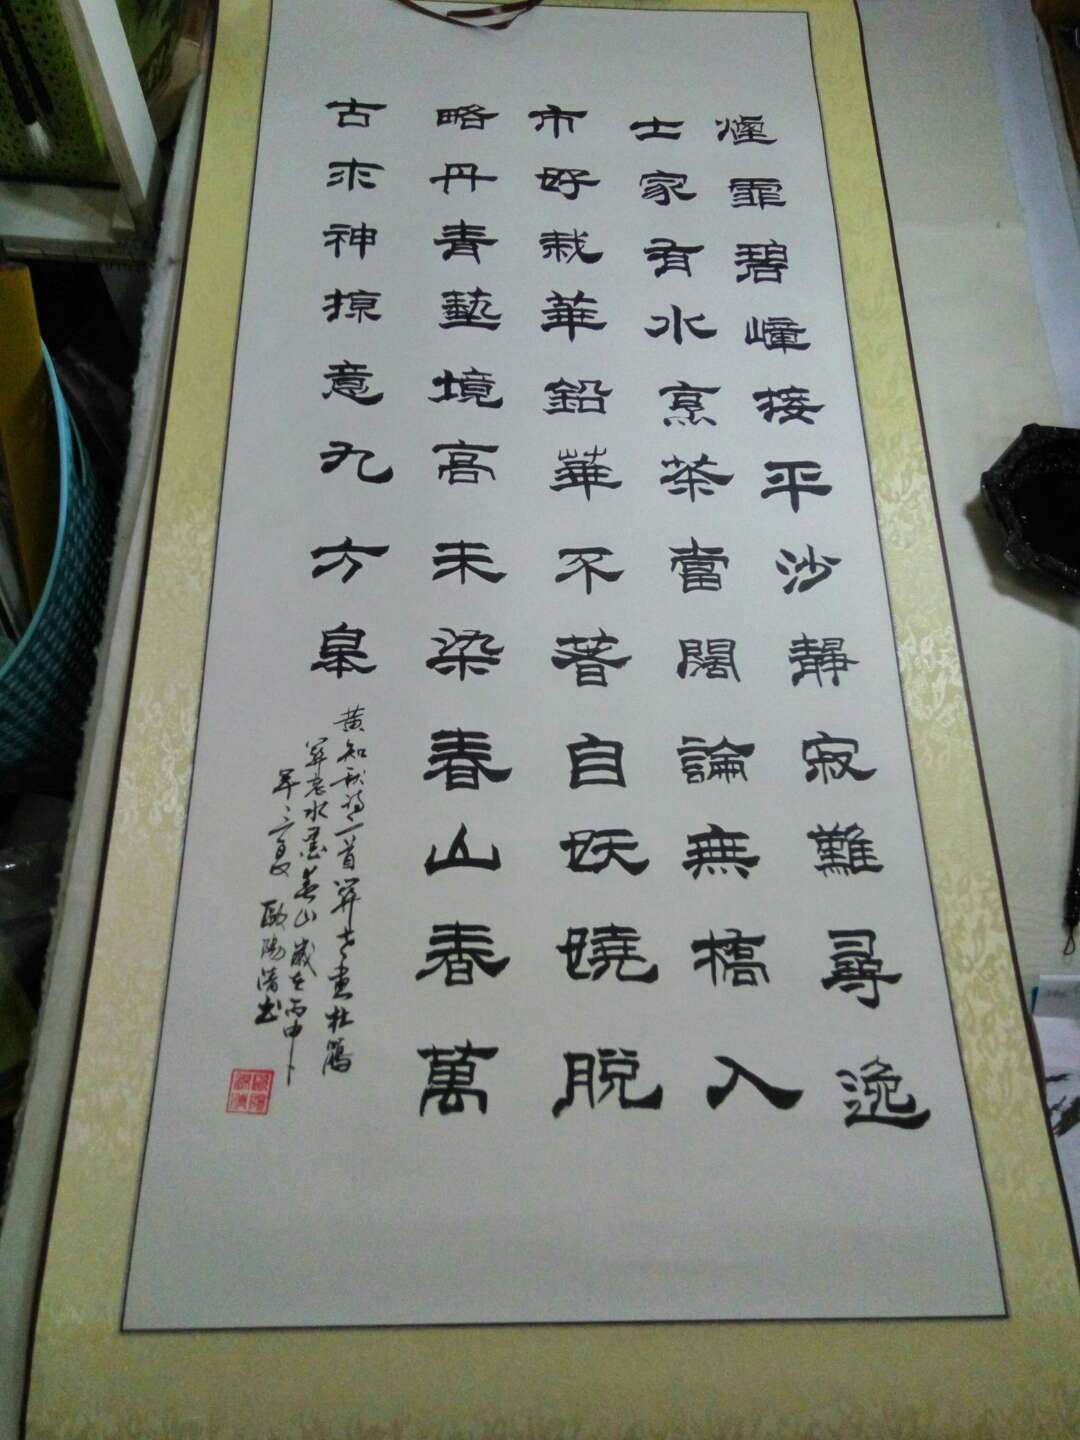 煙霏碧嶂接平沙靜寂難尋逸
士家有水烹茶當闊論無橋入
市好栽華鉛華不著自妖嬈脫
略丹青藝境高未染春山春萬
古求神掠意九方皋
黃知秋詩一首
老水墨春山歲在丙申
年夏 歐陽書